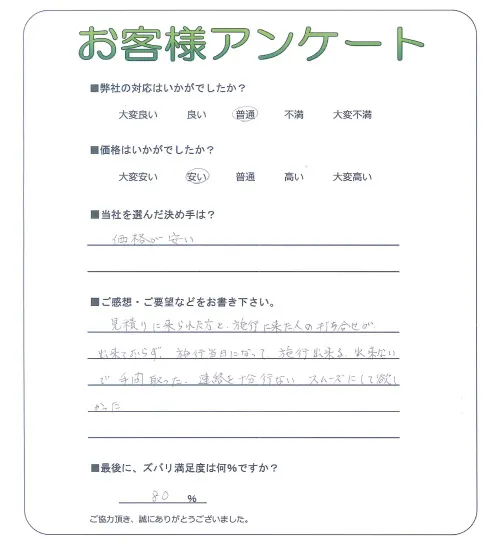 お客様アンケート
■弊社の対応はいかがでしたか？
大変良い 良い 普通 不満 大変不満
■価格はいかがでしたか？
大変安い 安い 普通 高い 大変高い
■当社を選んだ決め手は？
価格が安い
■ご感想・ご要望などをお書き下さい。
見積りに来られた方と、施行に来た人の打ち合せが
出来ておらず、施行当日になって、施行出来る、出来ない
で手間取った、連絡を十分行ない スムーズにして欲し
かった
■最後に、ズバリ満足度は何%ですか？
80 %
ご協力頂き、誠にありがとうございました。